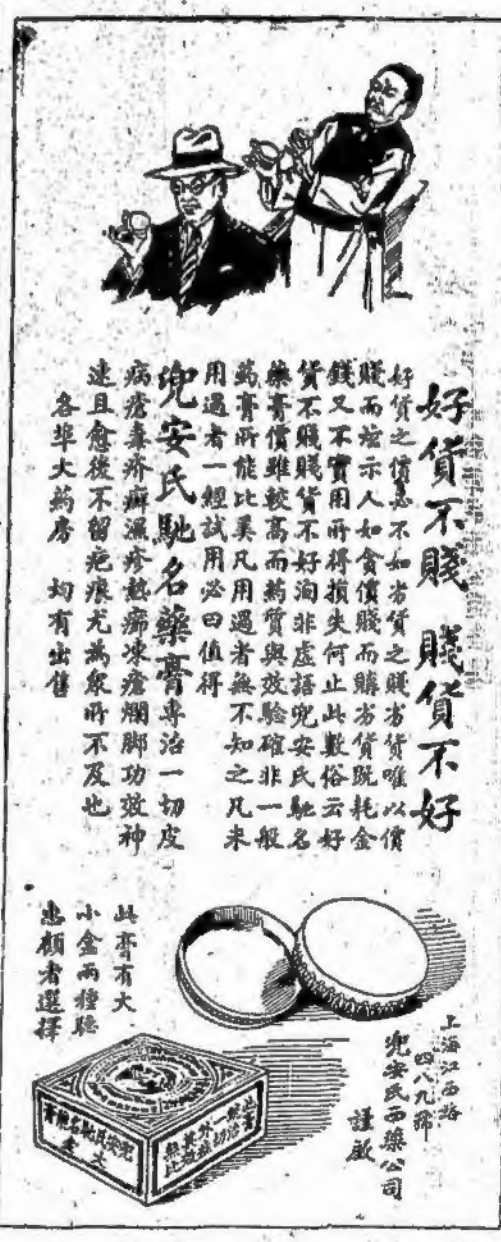 好貨不賤 賤貨不好
好貨之價必不如劣貨之賤劣貨唯以價
賤而炫示人如貪價賤而購劣貨既耗金
錢又不實用所得損失何止此數俗云好
貨不賤賤貨不好洵非虛語兜安氏馳名
藥膏價雖較高而葯質與效驗確非一般
葯膏所能比美凡用過者無不知之凡未
用過者一經試用必曰值得
兜安氏馳名藥膏專治一切皮
病瘡毒疥癬濕疹熱痱凍瘡爛脚功效神
速且愈後不留疤痕尤為衆所不及也
各埠大葯房 均有出售
此膏有大
小盒兩種聽
惠顧者選擇
上海江西路
四八九號
兜安氏西藥公司
謹啟
兜安氏馳名藥膏
大盒
此膏